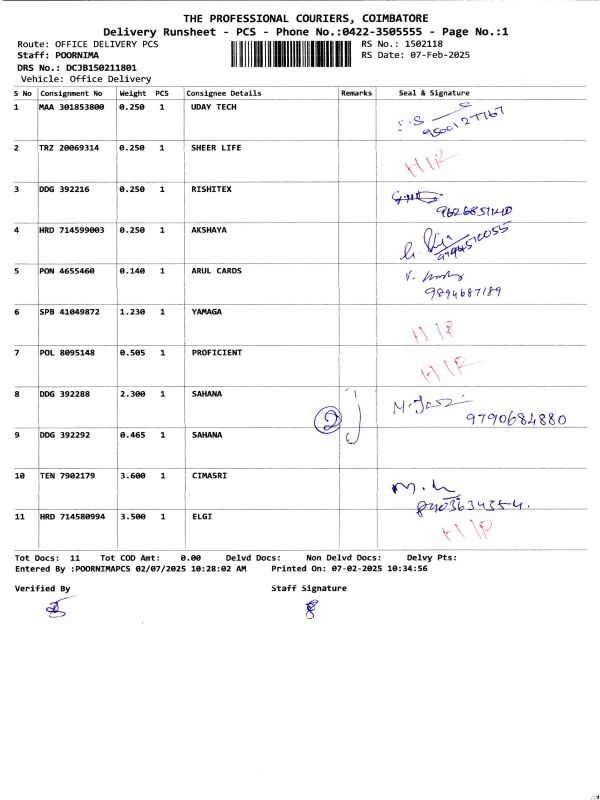 THE PROFESSIONAL COURIERS, COIMBATORE
Delivery Runsheet - PCS - Phone No.:0422-3505555 - Page No.:1
Route: OFFICE DELIVERY PCS RS No.: 1502118
Staff: POORNIMA RS Date: 07-Feb-2025
DRS No.: DCJB150211801
Vehicle: Office Delivery
S No Consignment No Weight PCS Consignee Details Remarks Seal & Signature
1 MAA 301853800 0.250 1 UDAY TECH
9500127767
2 TRZ 20069314 0.250 1 SHEER LIFE H/R
3 DDG 392216 0.250 1 RISHITEX
4 HRD 714599003 0.250 1 AKSHAYA
9794510055
5 PON 4655460 0.140 1 ARUL CARDS
9894687189
6 SPB 41049872 1.230 1 YAMAGA H/R
7 POL 8095148 0.505 1 PROFICIENT H/R
8 DDG 392288 2.300 1 SAHANA
2 9790684880
9 DDG 392292 0.465 1 SAHANA
10 TEN 7902179 3.600 1 CIMASRI
11 HRD 714580994 3.500 1 ELGI H/R
Tot Docs: 11 Tot COD Amt: 0.00 Delvd Docs: Non Delvd Docs: Delvy Pts:
Entered By :POORNIMAPCS 02/07/2025 10:28:02 AM Printed On: 07-02-2025 10:34:56
Verified By Staff Signature